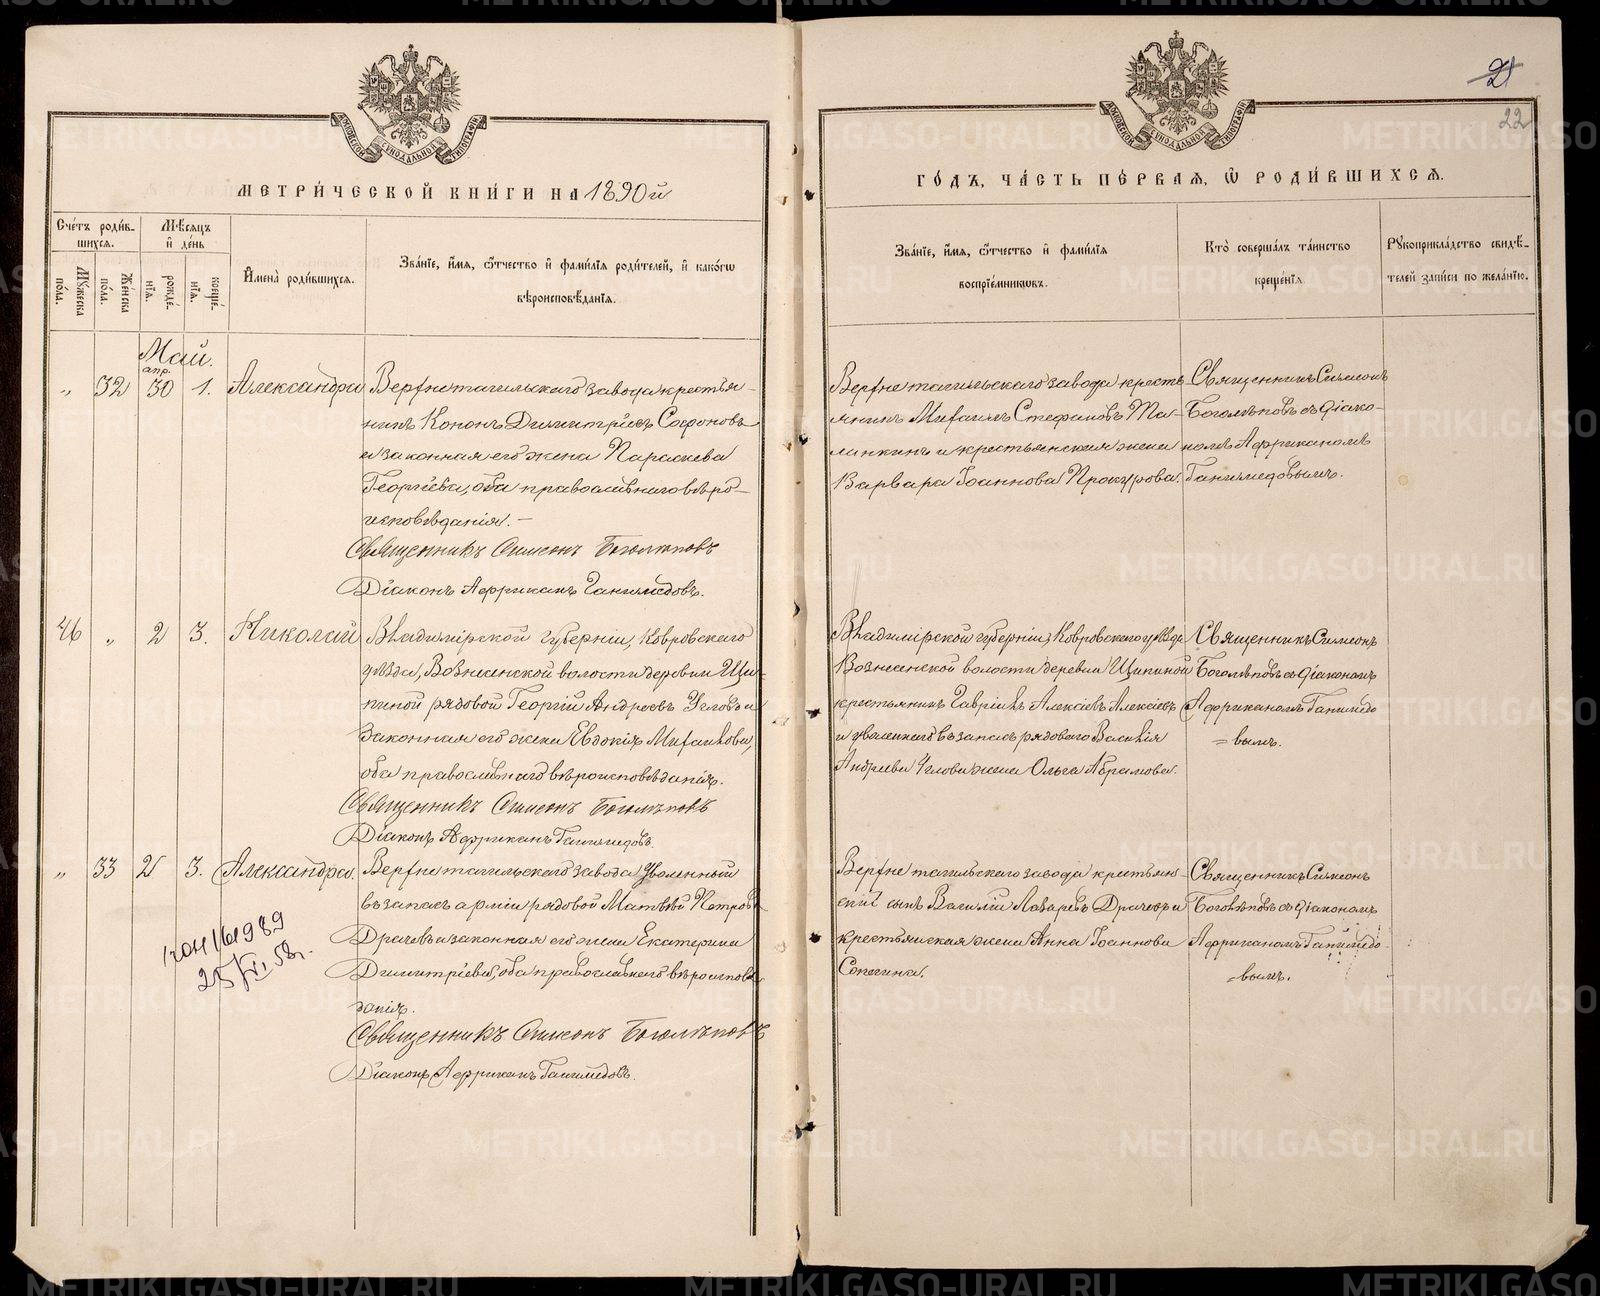 МЕТРИ́ЧЕСКОЙ КНИ́ГИ НА 1890й
Сче́тъ роди́в-
шихся.
Мѣ́сяцъ
и҆ де́нь
Мꙋ́жеска
по́ла.
Же́нска
по́ла.
рожде́-
нїя.
креще́-
нїя.
И҆мена̀ роди́вшихся.
Зва́нїе, и҆́мя, ѻ҆́тчество и҆ фами́лїя роди́телей, и҆ како́гѡ
вѣроисповѣ́данїя.
Май.
апр.
„ 32 30 1. Александра
Верхнетагильскаго завода крестья-
нинъ Кононъ Димитріевъ Софоновъ
и законная его жена Параскева
Георгіева, оба православнаго вѣро-
исповѣданія. –
Священникъ Симеонъ Боголѣповъ
Діаконъ Африканъ Ганимедовъ.
46 „ 2 3. Николай
Владимірской губерніи, Ковровскаго
уѣзда, Вознесенской волости деревни Щи-
пиной рядовой Георгій Андреевъ Угловъ и
законная его жена Евдокія Михаилова,
оба православнаго вѣроисповѣданія.
Священникъ Симеонъ Боголѣповъ
Діаконъ Африканъ Ганимедовъ.
„ 33 2 3. Александра.
Верхнетагильскаго завода уволенный
въ запасъ арміи рядовой Матвѣй Петровъ
Драчевъ и законная его жена Екатерина
Димитріева, оба православнаго вѣроиспов-
данія.
Священникъ Симеонъ Боголѣповъ
Діаконъ Африканъ Ганимедовъ.
25/VI 58г.
21
22
ГО́ДЪ, ЧА́СТЬ ПЕ́РВАЯ, Ѡ҆ РОДИ́ВШИХСЯ.
Зва́нїе, и҆́мя, ѻ҆́тчество и҆ фами́лїя
воспрїе́мникѡвъ.
Кто̀ соверша́лъ та́инство
креще́нїя.
Рꙋкоприкла́дство свидѣ́-
телей за́писи по жела́нїю.
Верхнетагильскаго завода кресть-
янинъ Михаилъ Стефановъ Та-
ланкинъ и крестьянская жена
Варвара Іоаннова Прокурова.
Священникъ Симеонъ
Боголѣповъ съ діако-
номъ Африканомъ
Ганимедовымъ.
Владимірской губерніи, Ковровскаго уѣзда
Вознесенской волости деревни Щипиной
крестьянинъ Гавріилъ Алексіевъ Алексіевъ
и уволеннаго въ запасъ рядоваго Василія
Андреева Углова жена Ольга Абрамова.
Священникъ Симеонъ
Боголѣповъ съ діакономъ
Африканомъ Ганимедо
=вымъ.
Верхнетагильскаго завода крестьян-
скій сынъ Василій Лазаревъ Драчевъ и
крестьянская жена Анна Іоаннова
Сопегина.
Священникъ Симеонъ
Боголѣповъ съ діакономъ
Африканомъ Ганимедо-
=вымъ.
METRIKI.GASO-URAL.RU